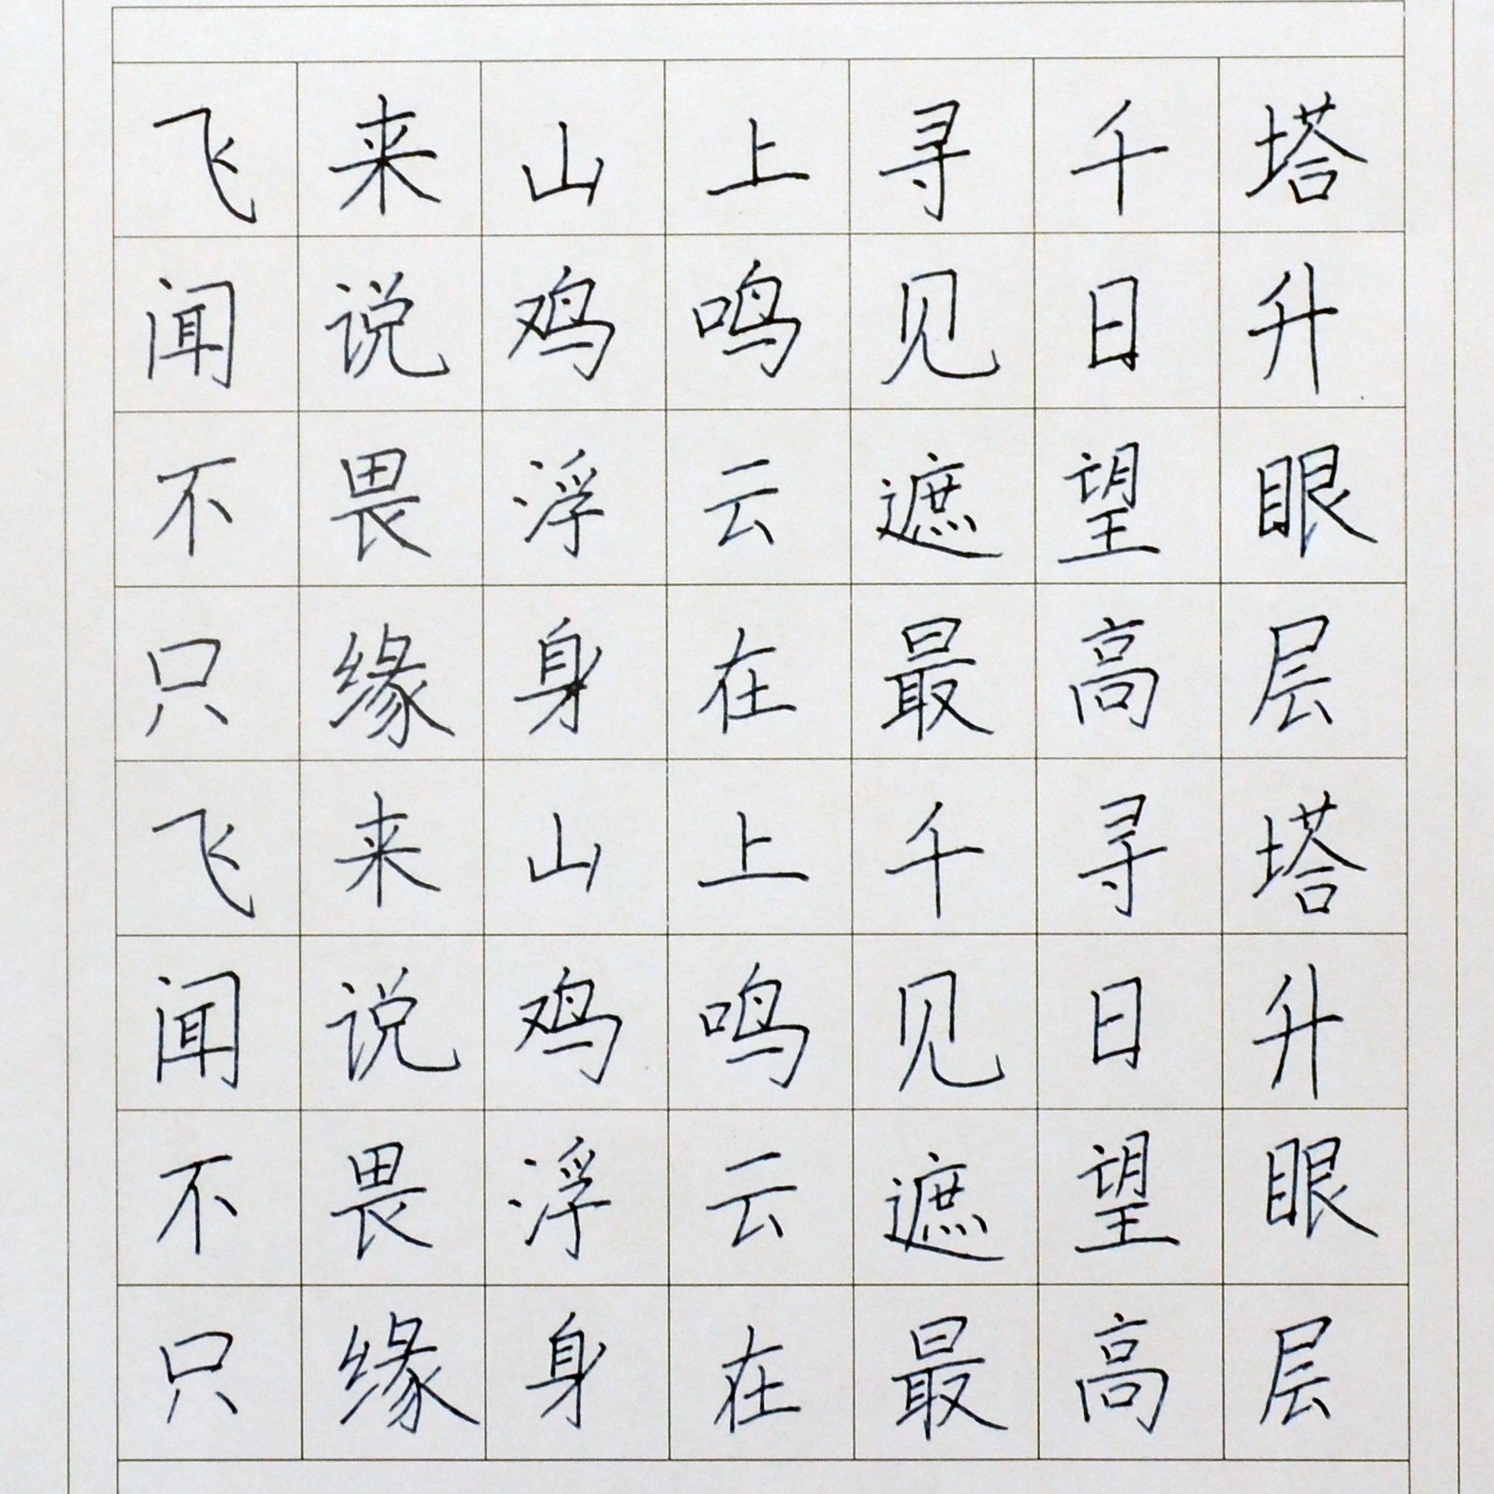 飞来山上寻千塔
闻说鸡鸣见日升
不畏浮云遮望眼
只缘身在最高层
飞来山上千寻塔
闻说鸡鸣见日升
不畏浮云遮望眼
只缘身在最高层